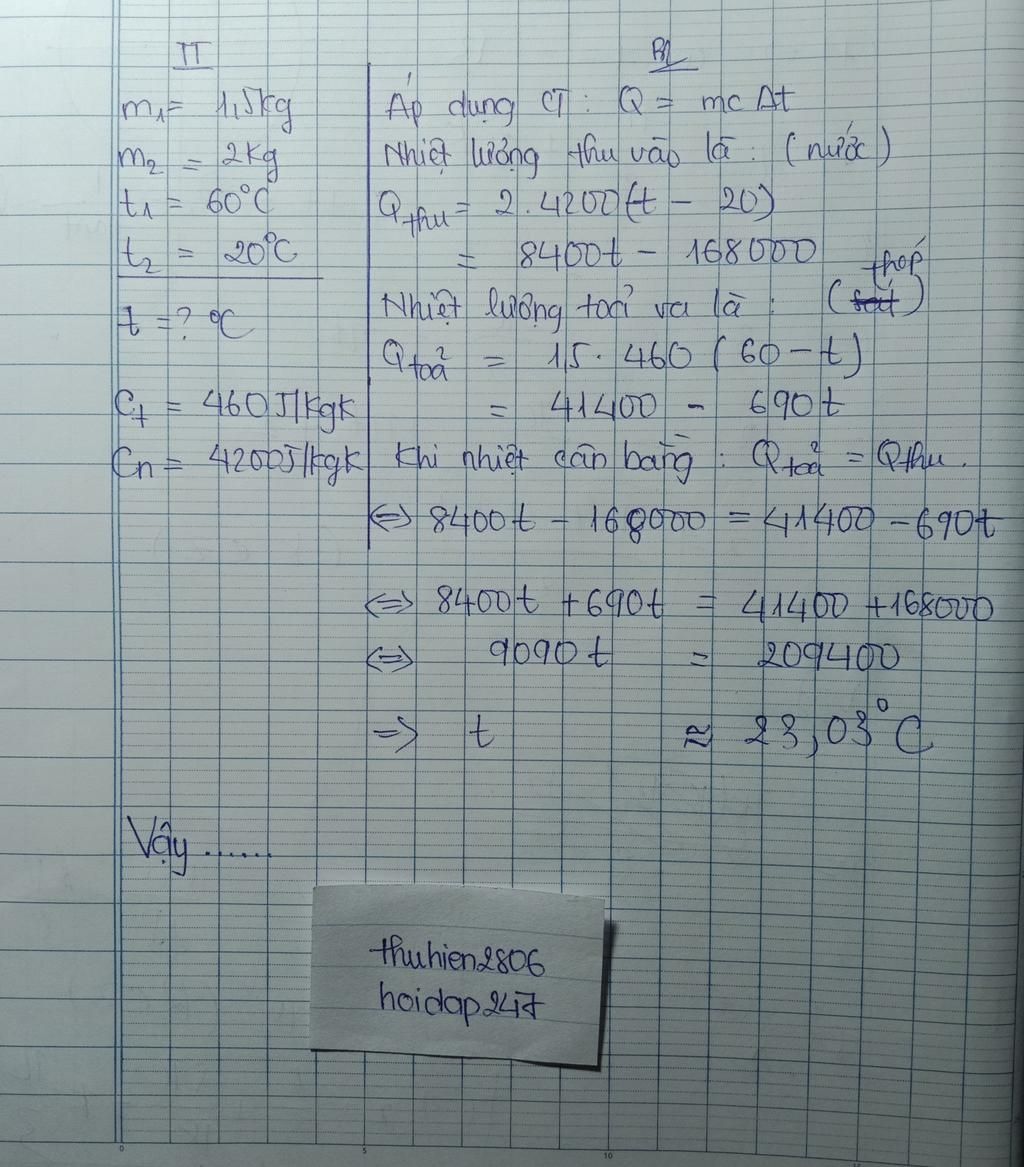 TT
m₁ = 1,5kg
m₂ = 2kg
t₁ = 60°C
t₂ = 20°C
t = ? °C
Ct = 460J/kgk
Cn = 4200J/kgk
BL
Áp dụng CT: Q = mc Δt
Nhiệt lượng thu vào là: (nước)
Qthu = 2.4200(t - 20)
= 8400t - 168000
Nhiệt lượng toả ra là: (thép)
Qtoả = 1,5. 460 (60 - t)
= 41400 - 690t
Khi nhiệt cân bằng: Qtoả = Qthu.
<=> 8400t - 168000 = 41400 - 690t
<=> 8400t + 690t = 41400 + 168000
<=> 9090t = 209400
=> t ≈ 23,03°C
Vậy ......
thuhien2806
hoidap247